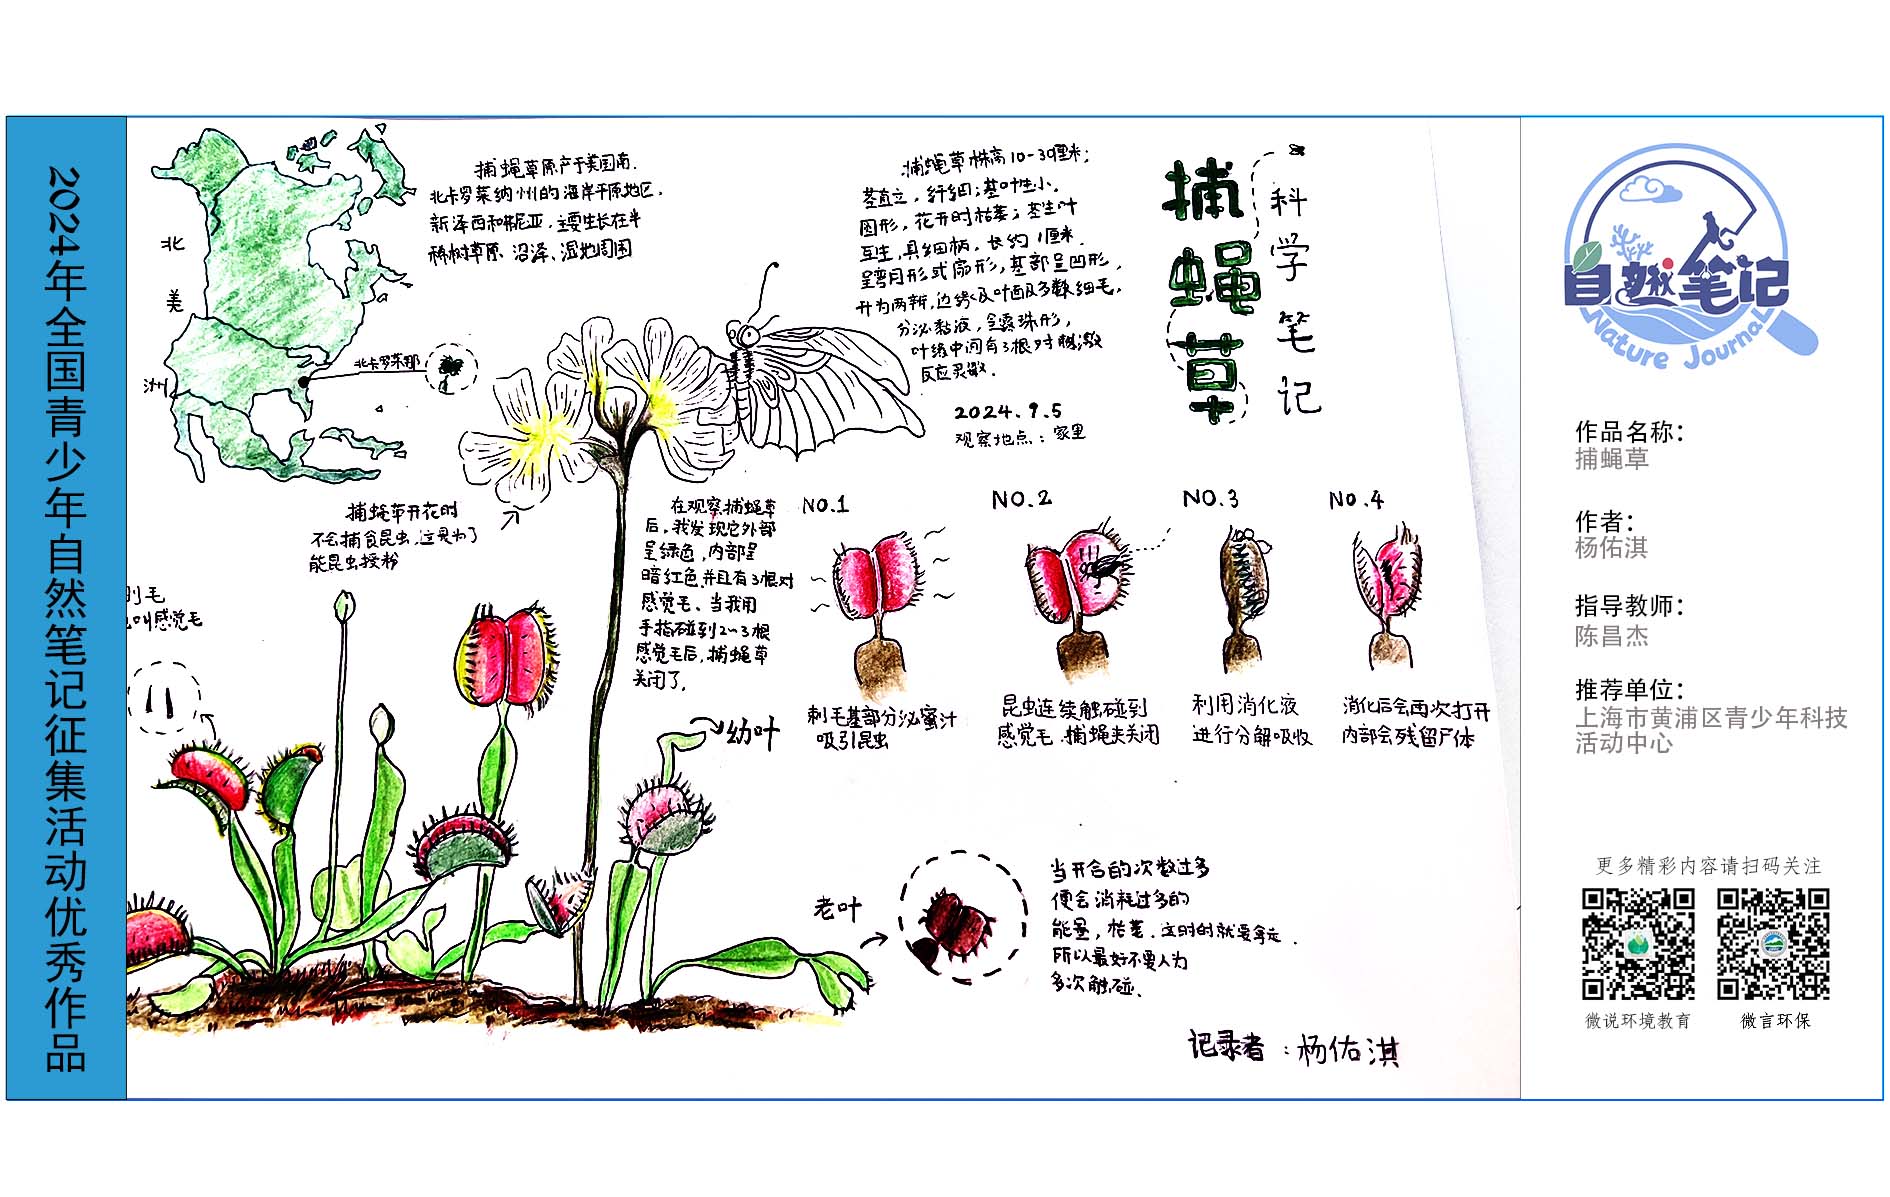 2024年全国青少年自然笔记征集活动优秀作品
捕蝇草
科学笔记
北
美
洲
北卡罗莱那
捕蝇草原产于美国南.
北卡罗莱纳州的海岸平原地区,
新泽西和
主要生长在半
稀树草原、沼泽、湿地周围
捕蝇草株高10-30厘米;
茎直立,纤细;基叶生小.
圆形,花开时枯萎;茎生叶
互生,具细柄,长约1厘米.
呈弯月形或扇形,基部呈凹形,
分泌黏液,呈露珠形,
叶缘中间有3根对
反应灵敏.
2024.9.5
观察地点:家里
捕蝇草开花时
不会捕食昆虫,这是为了
能昆虫授粉
在观察捕蝇草
后,我发现它外部
呈绿色,内部呈
暗红色并且有3根对
感觉毛、当我用
手指碰到2~3根
感觉毛后,捕蝇草
关闭了.
刺毛
叫感觉毛
幼叶
NO.1
刺毛基部分泌蜜汁
吸引昆虫
NO.2
昆虫连续触碰到
感觉毛.捕蝇夹关闭
NO.3
利用消化液
进行分解吸收
NO.4
消化后会再次打开
内部会残留尸体
老叶
当开合的次数过多
便会消耗过多的
能量,枯萎.
所以最好不要人为
多次触碰.
记录者:杨佑淇
自然笔记
Nature Journal
作品名称:
捕蝇草
作者:
杨佑淇
指导教师:
陈昌杰
推荐单位:
上海市黄浦区青少年科技
活动中心
更多精彩内容请扫码关注
微说环境教育
微言环保